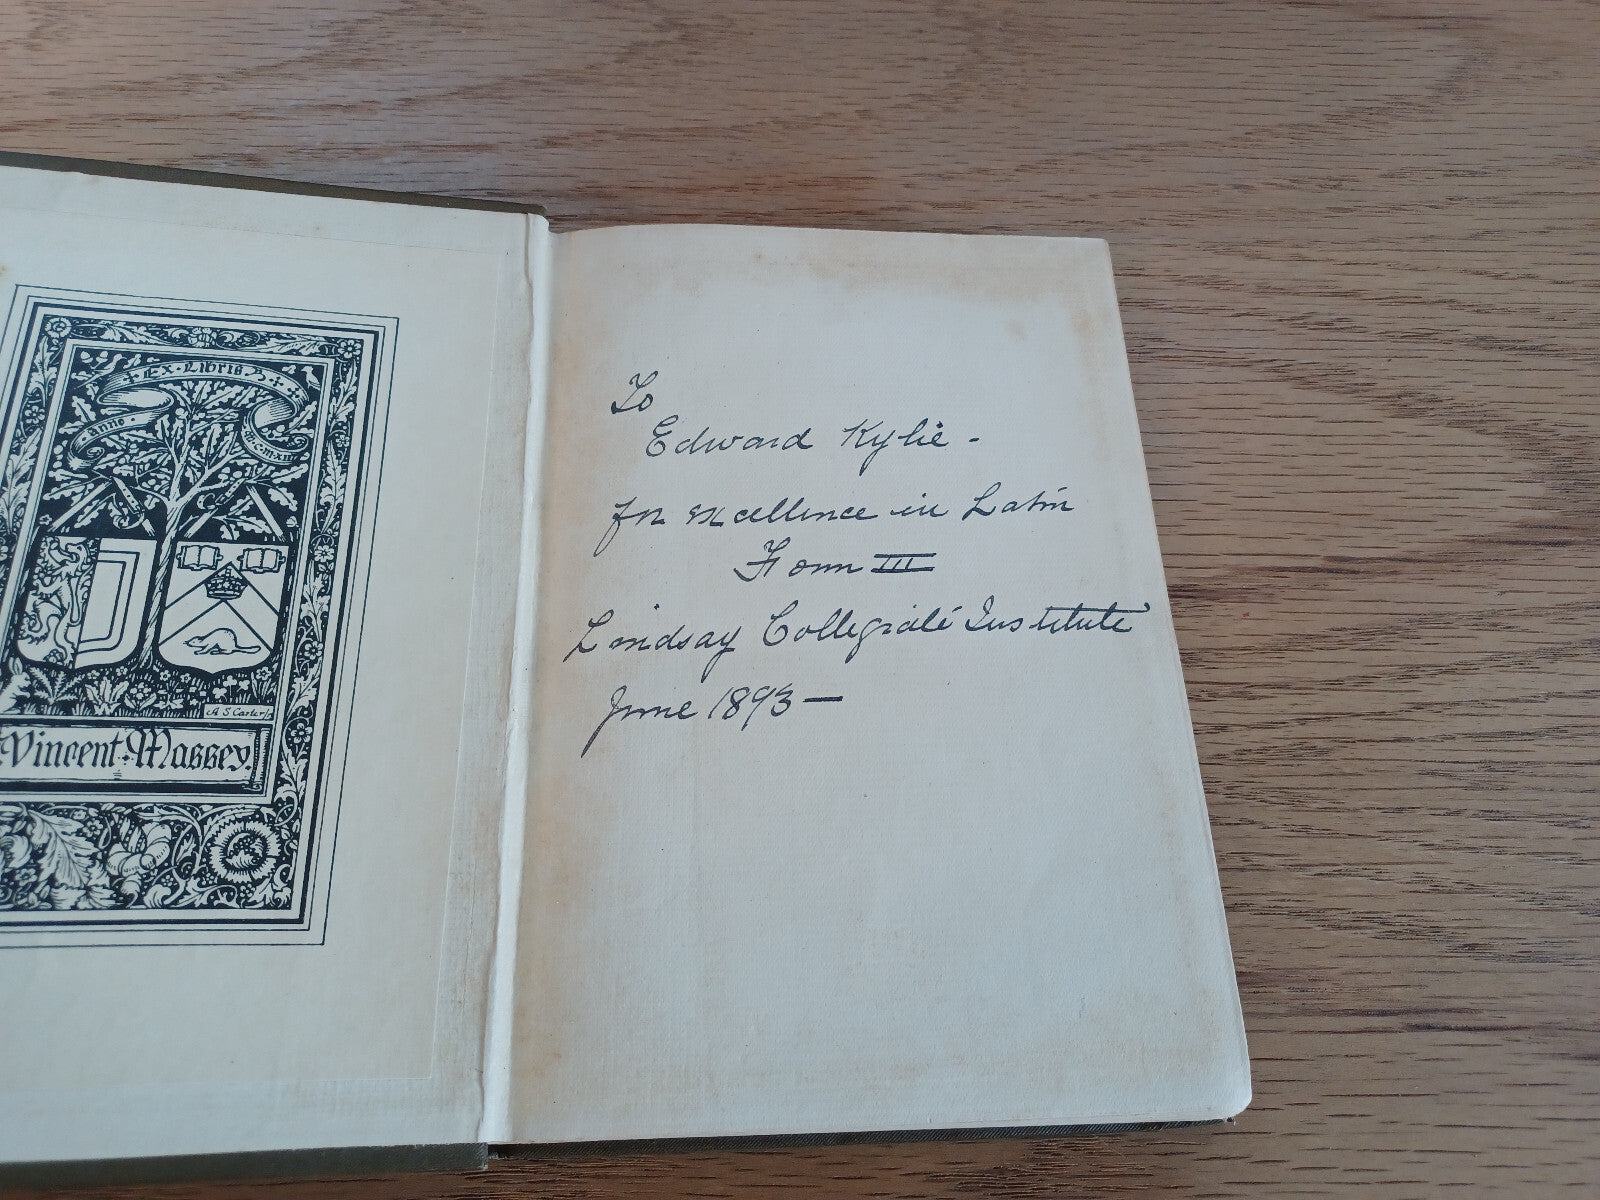 Ex·Libris
anno
m·c·m·xiii
A S Carter
Vincent·Massey.
To
Edward Kylie -
for excellence in Latin
Form III
Lindsay Collegiate Institute
June 1893 —